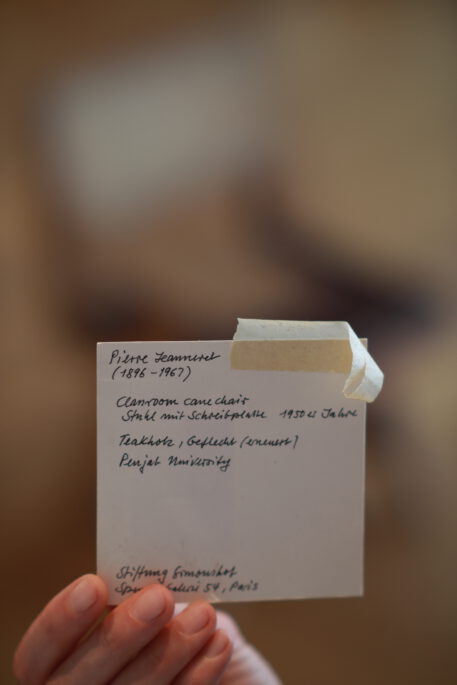 Pierre Jeanneret
(1896 - 1967)
Classroom cane chair
Stuhl mit Schreibplatte 1950er Jahre
Teakholz, Geflecht (erneuert)
Penjab University
Stiftung Simonshof
54, Paris